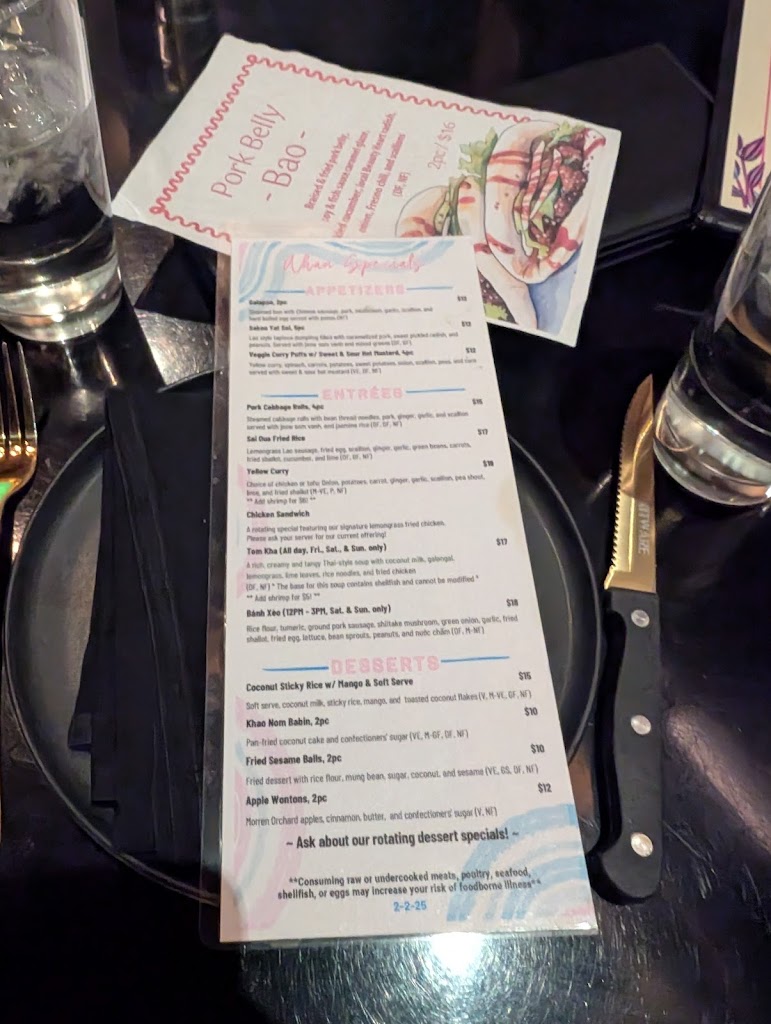 Pork Belly
- Bao -
Braised & fried pork belly,
soy & fish sauce caramel glaze,
cucumber, local Beauty Heart radish,
onion, Fresno chili, and scallions
(DF, NF)
2pc/ $16
Whan Specials
APPETIZERS
Salapao, 2pc $13
Steamed bun with Chinese sausage, pork, mushroom, garlic, scallion, and
hard boiled egg served with
Sakoo Yat Sai, 5pc $13
Lao style tapioca dumpling filled with caramelized pork, sweet pickled radish, and
peanuts. Served with jeow som vanh and mixed greens (DF, GF)
Veggie Curry Puffs w/ Sweet & Sour Hot Mustard, 4pc $12
Yellow curry, spinach, carrots, potatoes, sweet potatoes, onion, scallion, peas, and corn
served with sweet & sour hot mustard (VE, DF, NF)
ENTRÉES
Pork Cabbage Rolls, 4pc $16
Steamed cabbage rolls with bean thread noodles, pork, ginger, garlic, and scallion
served with jeow som vanh, and jasmine rice (DF, GF, NF)
Sai Oua Fried Rice $17
Lemongrass Lao sausage, fried egg, scallion, ginger, garlic, green beans, carrots,
fried shallot, cucumber, and lime (DF, GF, NF)
Yellow Curry $18
Choice of chicken or tofu: Onion, potatoes, carrot, ginger, garlic, scallion, pea shoot,
lime, and fried shallot (M-VE, P, NF)
** Add shrimp for $6! **
Chicken Sandwich
A rotating special featuring our signature lemongrass fried chicken.
Please ask your server for our current offering!
Tom Kha (All day, Fri., Sat., & Sun. only) $17
A rich, creamy and tangy Thai-style soup with coconut milk, galangal,
lemongrass, lime leaves, rice noodles, and fried chicken
(DF, NF) * The base for this soup contains shellfish and cannot be modified *
** Add shrimp for $5! **
Bánh Xèo (12PM - 3PM, Sat. & Sun. only) $18
Rice flour, tumeric, ground pork sausage, shiitake mushroom, green onion, garlic, fried
shallot, fried egg, lettuce, bean sprouts, peanuts, and nước chấm (DF, M-NF)
DESSERTS
Coconut Sticky Rice w/ Mango & Soft Serve $15
Soft serve, coconut milk, sticky rice, mango, and toasted coconut flakes (V, M-VE, GF, NF)
Khao Nom Babin, 2pc $10
Pan-fried coconut cake and confectioners' sugar (VE, M-GF, DF, NF)
Fried Sesame Balls, 2pc $10
Fried dessert with rice flour, mung bean, sugar, coconut, and sesame (VE, GS, DF, NF)
Apple Wontons, 2pc $12
Morren Orchard apples, cinnamon, butter, and confectioners' sugar (V, NF)
~ Ask about our rotating dessert specials! ~
**Consuming raw or undercooked meats, poultry, seafood,
shellfish, or eggs may increase your risk of foodborne illness**
2-2-25